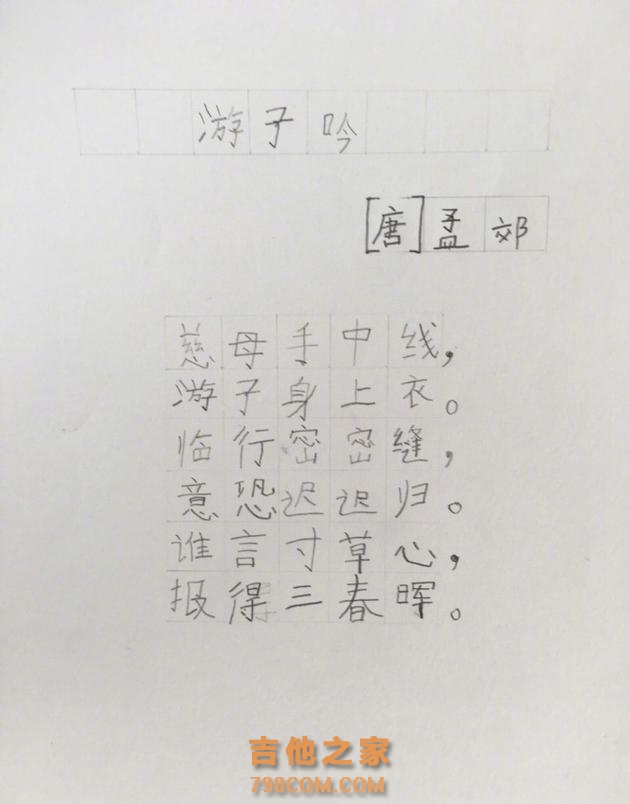 游子吟
[唐]孟郊
慈母手中线，
游子身上衣。
临行密密缝，
意恐迟迟归。
谁言寸草心，
报得三春晖。
吉他之家
798COM.COM